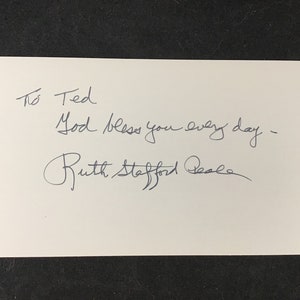 To Ted
God bless you every day -
Ruth Stafford Peale